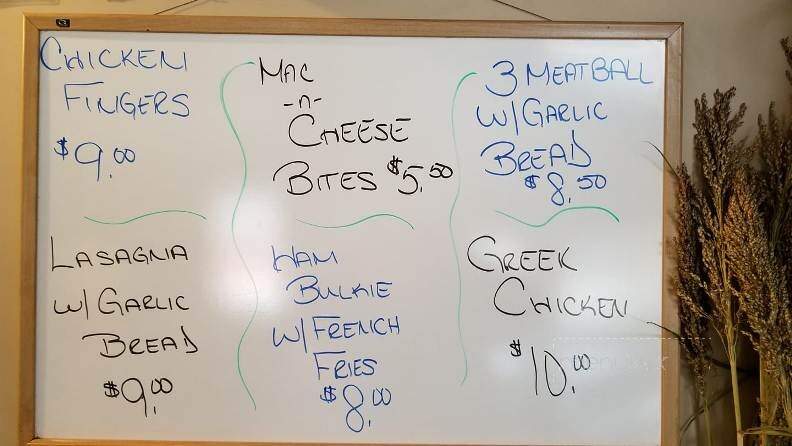 CHICKEN
FINGERS
$9.00
MAC
-n-
CHEESE
BITES $5.50
3 MEATBALL
W/GARLIC
BREAD
$8.50
LASAGNA
W/GARLIC
BREAD
$9.00
HAM
BULKIE
W/FRENCH
FRIES
$8.00
GREEK
CHICKEN
$10.00